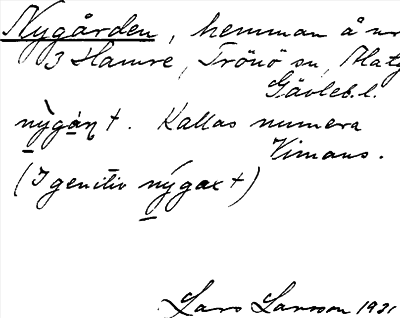 Nygården, hemman å nr
3 Hamre, Trönö sn,
Gävleb. l.
nỳgàṇ †. Kallas numera
Vimans.
(I genitiv nýgax †)
Lars Larsson 1931